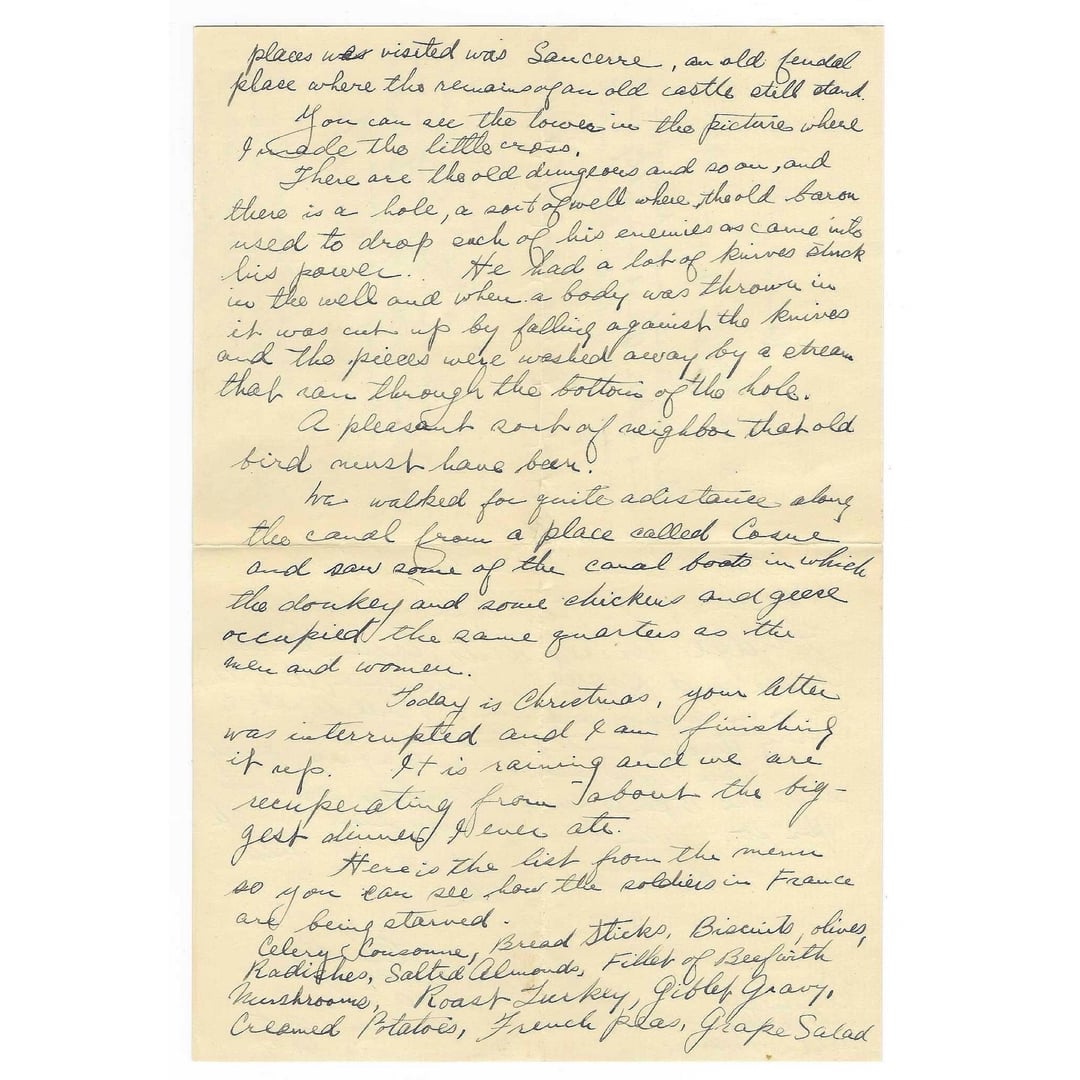 places was visited was Sancerre, an old feudal
place where the remains of an old castle still stand.
You can see the tower in the picture where
I made the little cross.
There are the old dungeons and so on, and
there is a hole, a sort of well where the old baron
used to drop such of his enemies as came into
his power. He had a lot of knives stuck
in the well and when a body was thrown in
it was cut up by falling against the knives
and the pieces were washed away by a stream
that ran through the bottom of the hole.
A pleasant sort of neighbor that old
bird must have been.
We walked for quite a distance along
the canal from a place called Cosne
and saw some of the canal boats in which
the donkey and some chickens and geese
occupied the same quarters as the
men and women.
Today is Christmas, your letter
was interrupted and I am finishing
it up. It is raining and we are
recuperating from about the big-
gest dinner I ever ate.
Here is the list from the menu
so you can see how the soldiers in France
are being starved.
Celery Consonne, Bread Sticks, Biscuits, olives,
Radishes, Salted Almonds, Fillet of Beef with
Mushrooms, Roast Turkey, Giblet Gravy,
Creamed Potatoes, French peas, Grape Salad